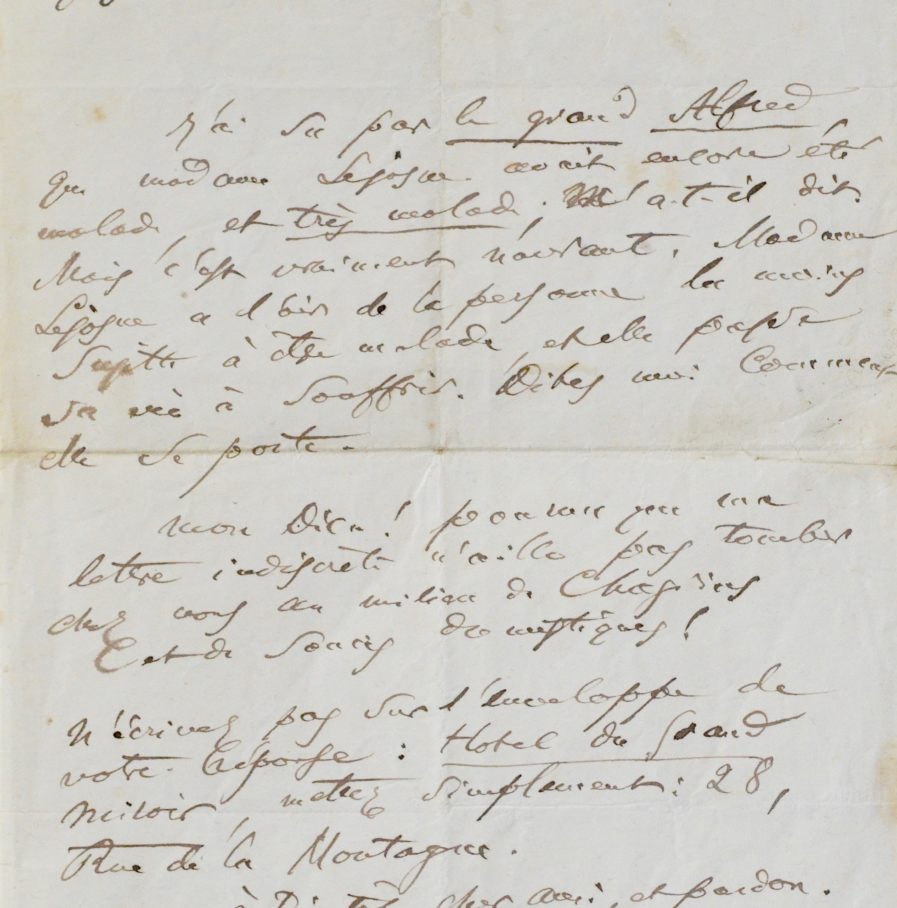 J'ai su par le grand Alfred
que madame Lejosne avait encore été
malade, et très malade, m'a-t-il dit.
Mais c'est vraiment navrant. Madame
Lejosne a l'air de la personne la moins
sujette à être malade, et elle passe
sa vie à souffrir. Dites moi comment
elle se porte.
Mon Dieu! pourvu que ma
lettre indiscrète n'aille pas tomber
chez vous au milieu de chagrins
et de soucis domestiques!
N'écrivez pas sur l'enveloppe de
votre réponse : Hotel du Grand
miroir, mettez simplement : 28,
Rue de la Montagne.
à Bientôt, cher ami, et pardon.